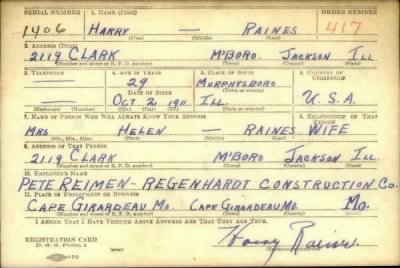 SERIAL NUMBER 1. NAME (Print) ORDER NUMBER
1406 HARRY — RAINES 417
(First) (Middle) (Last)
2. ADDRESS (Print)
2119 CLARK M'BORO JACKSON ILL
(Number and street or R. F. D. number) (Town) (County) (State)
3. TELEPHONE 4. AGE IN YEARS 5. PLACE OF BIRTH 6. COUNTRY OF CITIZENSHIP
— 29 MURPHYSBORO
DATE OF BIRTH (Town or county)
OCT 2 1911 ILL. U.S.A.
(Exchange) (Number) (Mo.) (Day) (Yr.) (State or country)
7. NAME OF PERSON WHO WILL ALWAYS KNOW YOUR ADDRESS 8. RELATIONSHIP OF THAT PERSON
MRS HELEN — RAINES WIFE
(Mr., Mrs., Miss) (First) (Middle) (Last)
9. ADDRESS OF THAT PERSON
2119 CLARK M'BORO JACKSON ILL.
(Number and street or R. F. D. number) (Town) (County) (State)
10. EMPLOYER'S NAME
PETE REIMEN - REGENHARDT CONSTRUCTION CO.
11. PLACE OF EMPLOYMENT OR BUSINESS
CAPE GIRARDEAU MO CAPE GIRARDEAU MO. MO.
(Number and street or R. F. D. number) (Town) (County) (State)
I AFFIRM THAT I HAVE VERIFIED ABOVE ANSWERS AND THAT THEY ARE TRUE.
REGISTRATION CARD
D. S. S. FORM 1 Harry Raines